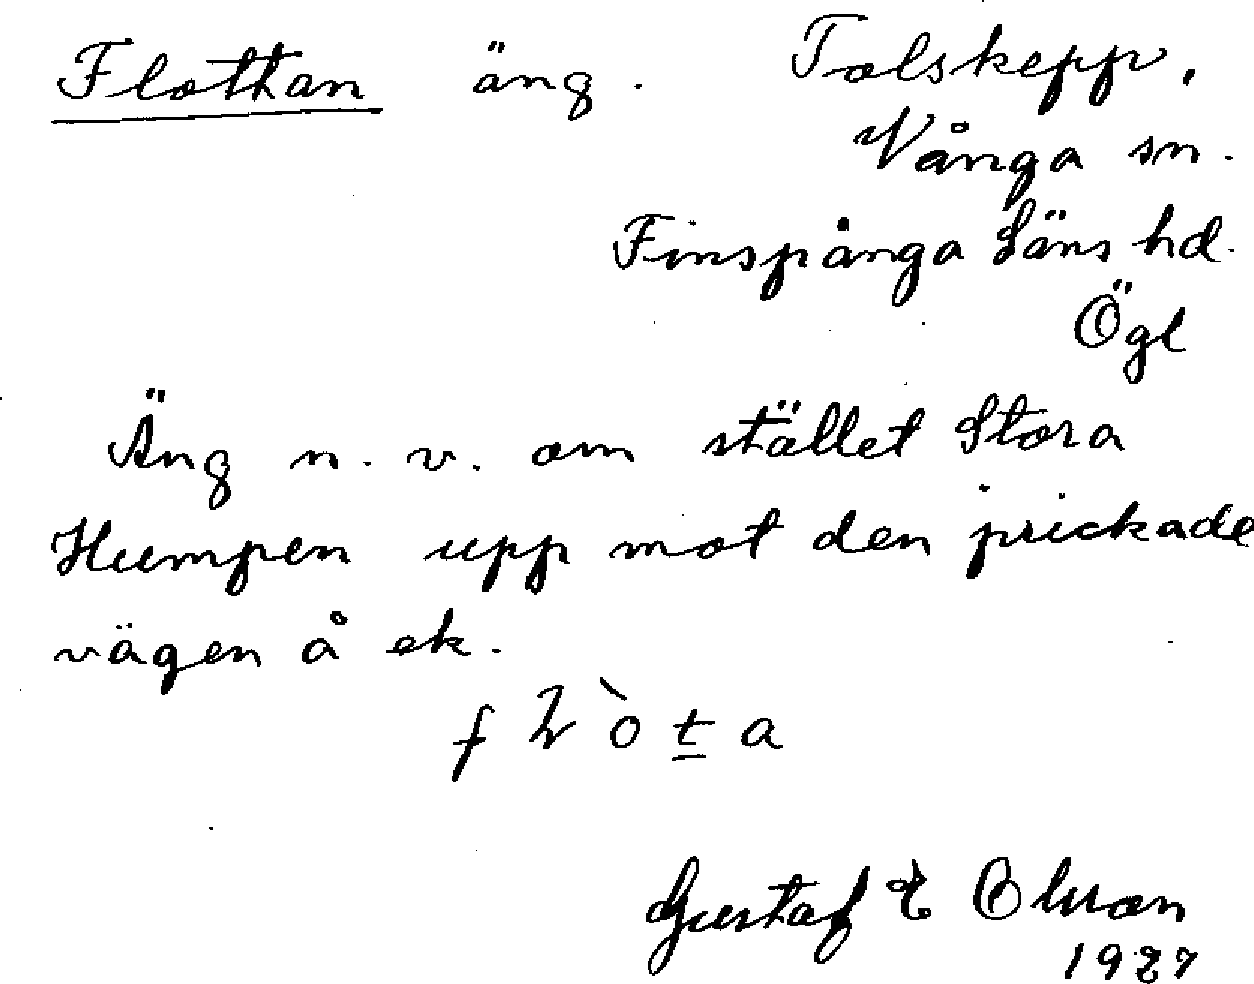 Flottan äng. Tolskepp,
Vånga sn.
Finspånga Läns hd.
Ögl
Äng n.v. om stället Stora
Humpen upp mot den prickade
vägen å ek.
Gustaf E Olsson
1927